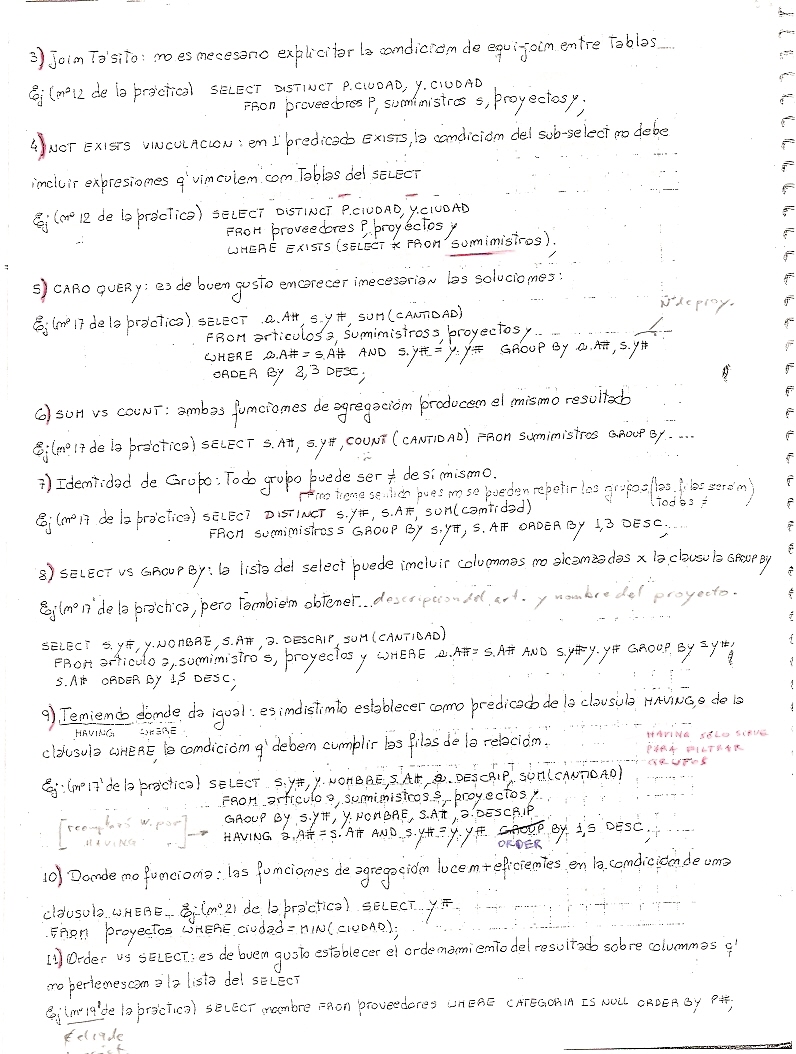 3) Join Tásito: no es necesario explicitar la condición de equi-join entre Tablas
Ej (nº 12 de la práctica) SELECT DISTINCT P.CIUDAD, Y.CIUDAD
FROM proveedores P, suministros s, proyectos y;
4) NOT EXISTS VINCULACION: en 1 predicado EXISTS, la condición del sub-select no debe
incluir expresiones q' vinculen con Tablas del SELECT
Ej: (nº 12 de la práctica) SELECT DISTINCT P.CIUDAD, Y.CIUDAD
FROM proveedores P, proyectos y
WHERE EXISTS (SELECT * FROM suministros).
5) CARO QUERY: es de buen gusto encarecer inecesarian las soluciones:
Nº de proy.
Ej: (nº 17 de la práctica) SELECT a.A#, S.Y#, SUM(CANTIDAD)
FROM articulos a, suministros s, proyectos y
WHERE a.A# = S.A# AND S.Y# = Y.Y# GROUP BY a.A#, S.Y#
ORDER BY 2,3 DESC;
6) SUM VS COUNT: ambas funciones de agregación producen el mismo resultado
Ej: (nº 17 de la práctica) SELECT S.A#, S.Y#, COUNT (CANTIDAD) FROM suministros GROUP BY ....
7) Identidad de Grupo: Todo grupo puede ser ≠ de sí mismo.
no tiene sentido pues no se pueden repetir los grupos (las filas serán)
todas ≠
Ej: (nº 17 de la práctica) SELECT DISTINCT S.Y#, S.A#, SUM(cantidad)
FROM suministros s GROUP BY S.Y#, S.A# ORDER BY 1,3 DESC;
8) SELECT VS GROUP BY: la lista del select puede incluir columnas no alcanzadas x la clausula GROUP BY
Ej: (nº 17' de la práctica, pero también obtener... descripcion del art. y nombre del proyecto.
SELECT S.Y#, Y.NOMBRE, S.A#, a.DESCRIP, SUM(CANTIDAD)
FROM articulo a, suministro s, proyectos y WHERE a.A# = S.A# AND S.Y#=Y.Y# GROUP BY S.Y#,
S.A# ORDER BY 1,5 DESC;
9) Teniendo dónde da igual: es indistinto establecer como predicado de la clausula HAVING, o de la
HAVING WHERE
clausula WHERE, la condición q' deben cumplir las filas de la relación.
HAVING SÓLO SIRVE
PARA FILTRAR
GRUPOS
Ej: (nº 17' de la práctica) SELECT S.Y#, Y.NOMBRE, S.A#, a.DESCRIP, SUM(CANTIDAD)
FROM articulo a, suministros s, proyectos y
GROUP BY S.Y#, Y.NOMBRE, S.A#, a.DESCRIP
[reemplazó W. por HAVING] →
HAVING a.A# = S.A# AND S.Y# = Y.Y# GROUP BY 1,5 DESC;
ORDER
10) Donde no funciona: las funciones de agregación lucen + eficientes en la condición de una
clausula WHERE Ej: (nº 21 de la práctica) SELECT Y#
FROM proyectos WHERE ciudad = MIN(CIUDAD);
11) Order VS SELECT: es de buen gusto establecer el ordenamiento del resultado sobre columnas q'
no pertenescan a la lista del SELECT
Ej (nº 19' de la práctica) SELECT nombre FROM proveedores WHERE CATEGORIA IS NULL ORDER BY P#;
≠ el 19 de